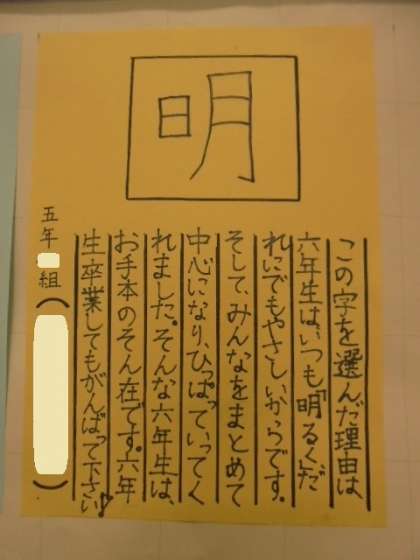 明
この字を選んだ理由は、
六年生は、いつも「明るく、だ
れにでもやさしいからです。
そして、みんなをまとめて
中心になり、ひっぱっていってく
れました。そんな六年生は、
お手本のそん在です。六年
生卒業してもがんばって下さい♪
五年 組( )